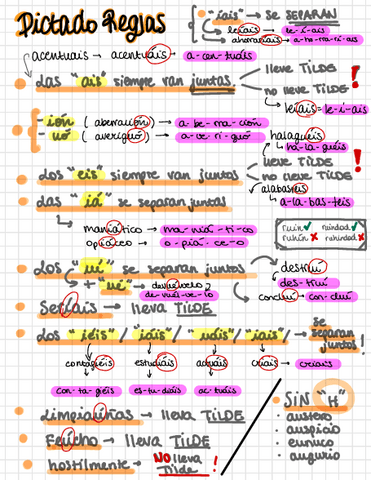 Dictado Reglas
"íais" → se SEPARAN
leíais → le-í-ais
ahorraríais → a-ho-rra-rí-ais
acentuais → acentuáis → a-cen-tuáis
Las "ais" siempre van juntas
lleve TILDE
no lleve TILDE !
leíais = le-í-ais
-ión (aberración) → a-be-rra-ción
uó (averiguó) → a-ve-ri-guó
halaguéis
ha-la-guéis
Los "eis" siempre van juntos
lleve TILDE
no lleve TILDE !
Las "iá" se separan juntas
alabasteis
a-la-bas-teis
maniático → ma-niá-ti-co
opiáceo → o-piá-ce-o
ruin ✓ ruindad ✓
ruhín ✗ ruhindad ✗
Los "uí" se separan juntos
destruí
des-truí
+ "ué" → devuévelo
de-vué-ve-lo
concluí → con-cluí
Serlais → lleva TILDE
Los "iéis" / "iáis" / "uáis" / "iais" / → se separan juntos !
contagiéis estudiáis actuáis criais → criais
con-ta-giéis es-tu-diáis ac-tuáis
Limpiaúñas → lleva TILDE
Feúcho → lleva TILDE
hostilmente → NO lleva Tilde !
SIN "H"
• austero
• auspicio
• eunuco
• augurio